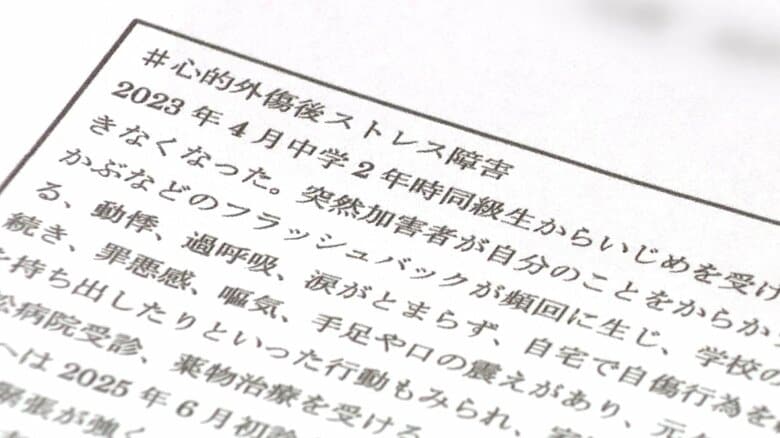 #心的外傷後ストレス障害
2023年4月中学2年時同級生からいじめを受け
きなくなった。突然加害者が自分のことをからかっ
かぶなどのフラッシュバックが頻回に生じ、学校の
る、動悸、過呼吸、涙がとまらず、自宅で自傷行為を
続き、罪悪感、嘔気、手足や口の震えがあり、元
を持ち出したりといった行動もみられ、
松病院受診、薬物治療を受ける
へは2025年6月初診
緊張が強く